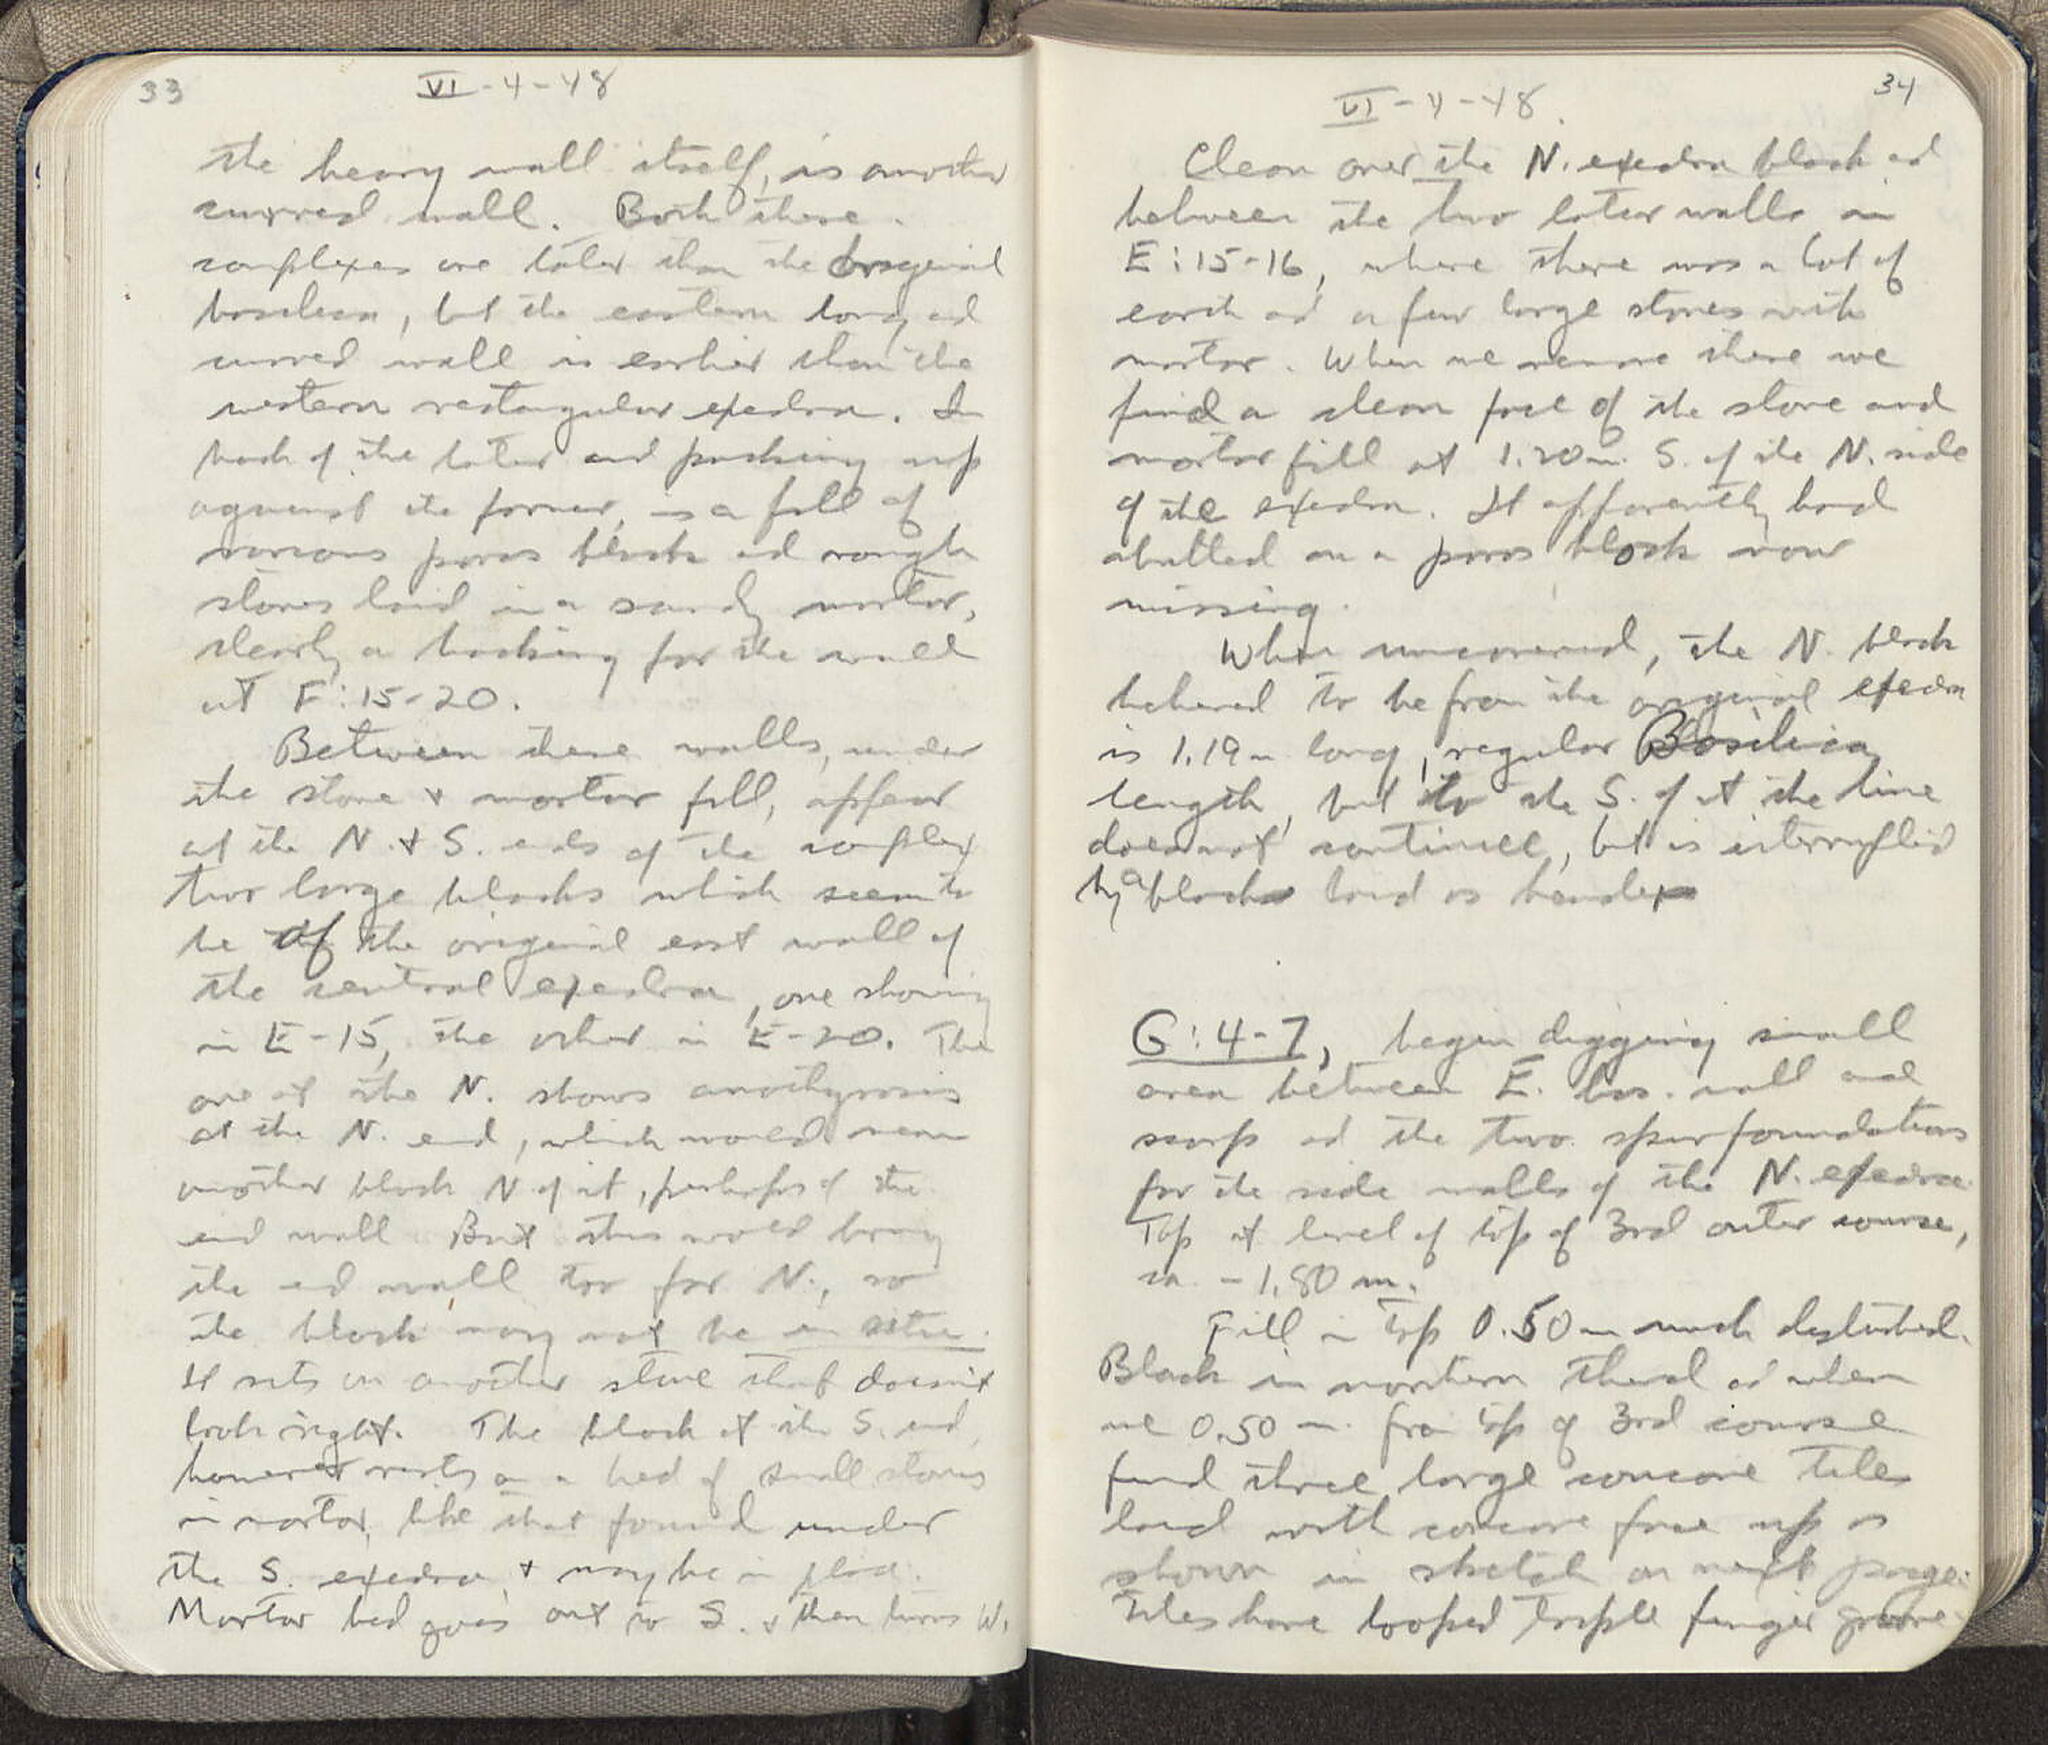 33
VI-4-48
the heavy wall itself, is another
curved wall. Both these
complexes are later than the original
basilica, but the eastern long and
curved wall is earlier than the
western rectangular exedra. In
back of the later and packing up
against the former, is a fill of
various poros blocks and rough
stones laid in a sandy mortar,
clearly a backing for the wall
at F:15-20.
Between these walls, under
the stone + mortar fill, appear
at the N. + S. ends of the complex
two large blocks which seem to
be of the original east wall of
the central exedra, one showing
in E-15, the other in E-20. The
one at the N. shows anathyrosis
at the N. end, which would mean
another block N of it, perhaps of the
end wall. But this would bring
the end wall too far N., so
the block may not be in situ.
It sets on another stone that doesn't
look right. The block at the S. end,
however rests on a bed of small stones
in mortar, like that found under
the S. exedra, + may be in place.
Mortar bed goes out to S. + then turns W.
34
VI-4-48.
Clean over the N. exedra block and
between the two later walls in
E:15-16, where there was a lot of
earth and a few large stones with
mortar. When we remove these we
find a clean face of the stone and
mortar fill at 1.20 m. S. of the N. side
of the exedra. It apparently had
abutted on a poros block now
missing.
When uncovered, the N. block
believed to be from the original exedra
is 1.19 m long, regular Basilica
length, but to the S. of it the line
does not continue, but is interrupted
by a block laid as header
G:4-7, begin digging small
area between E. bas. wall and
scarp and the two spur foundations
for the side walls of the N. exedra.
Top at level of top of 3rd outer course,
ca. -1.80 m.
Fill in top 0.50 m much disturbed.
Black in northern third and when
we 0.50 m. from top of 3rd course
find three large concave tiles
laid with concave face up as
shown in sketch on next page.
Tiles have looped triple finger groove